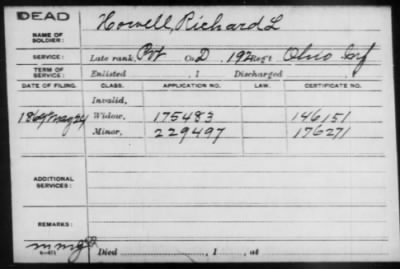 DEAD
NAME OF SOLDIER: Howell, Richard L
SERVICE: Late rank, Pvt Co. D, 192 Reg't Ohio Inf
TERM OF SERVICE: Enlisted , 1 Discharged
DATE OF FILING. CLASS. APPLICATION NO. LAW. CERTIFICATE NO.
Invalid,
1869 May 24 Widow, 175483 146,151
Minor, 229497 176271
ADDITIONAL SERVICES:
REMARKS:
Died , 1 , at